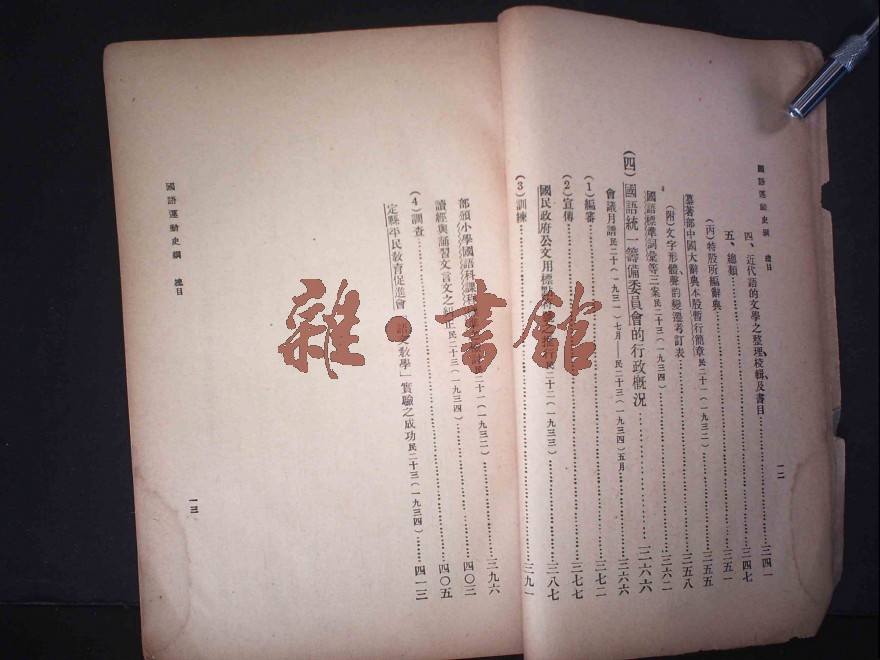 國語運動史綱 總目
一二
四、近代語的文學之整理、校輯及書目……三四一
五、總類……三四七
(丙)特殊所編辭典……三五一
纂著部中國大辭典本股暫行簡章民二十一(一九三二)……三五五
(附)文字形體聲韵變遷考訂表……三五八
國語標準詞彙等三案民二十三(一九三四)……三六二
(四)國語統一籌備委員會的行政概況……三六六
會議月譜民二十(一九三一)七月——民二十三(一九三四)五月……三六六
(1)編審……三七二
(2)宣傳……三七七
國民政府公文用標點 之推行民二十二(一九三三)……三八七
(3)訓練……三九一
部頒小學國語科課程 民二十一(一九三二)……三九六
讀經與誦習文言文之糾正民二十三(一九三四)……四〇三
(4)調查……四〇五
定縣平民教育促進會「語文教學」實驗之成功民二十三(一九三四)……四一三
國語運動史綱 總目
一三
雜·書館